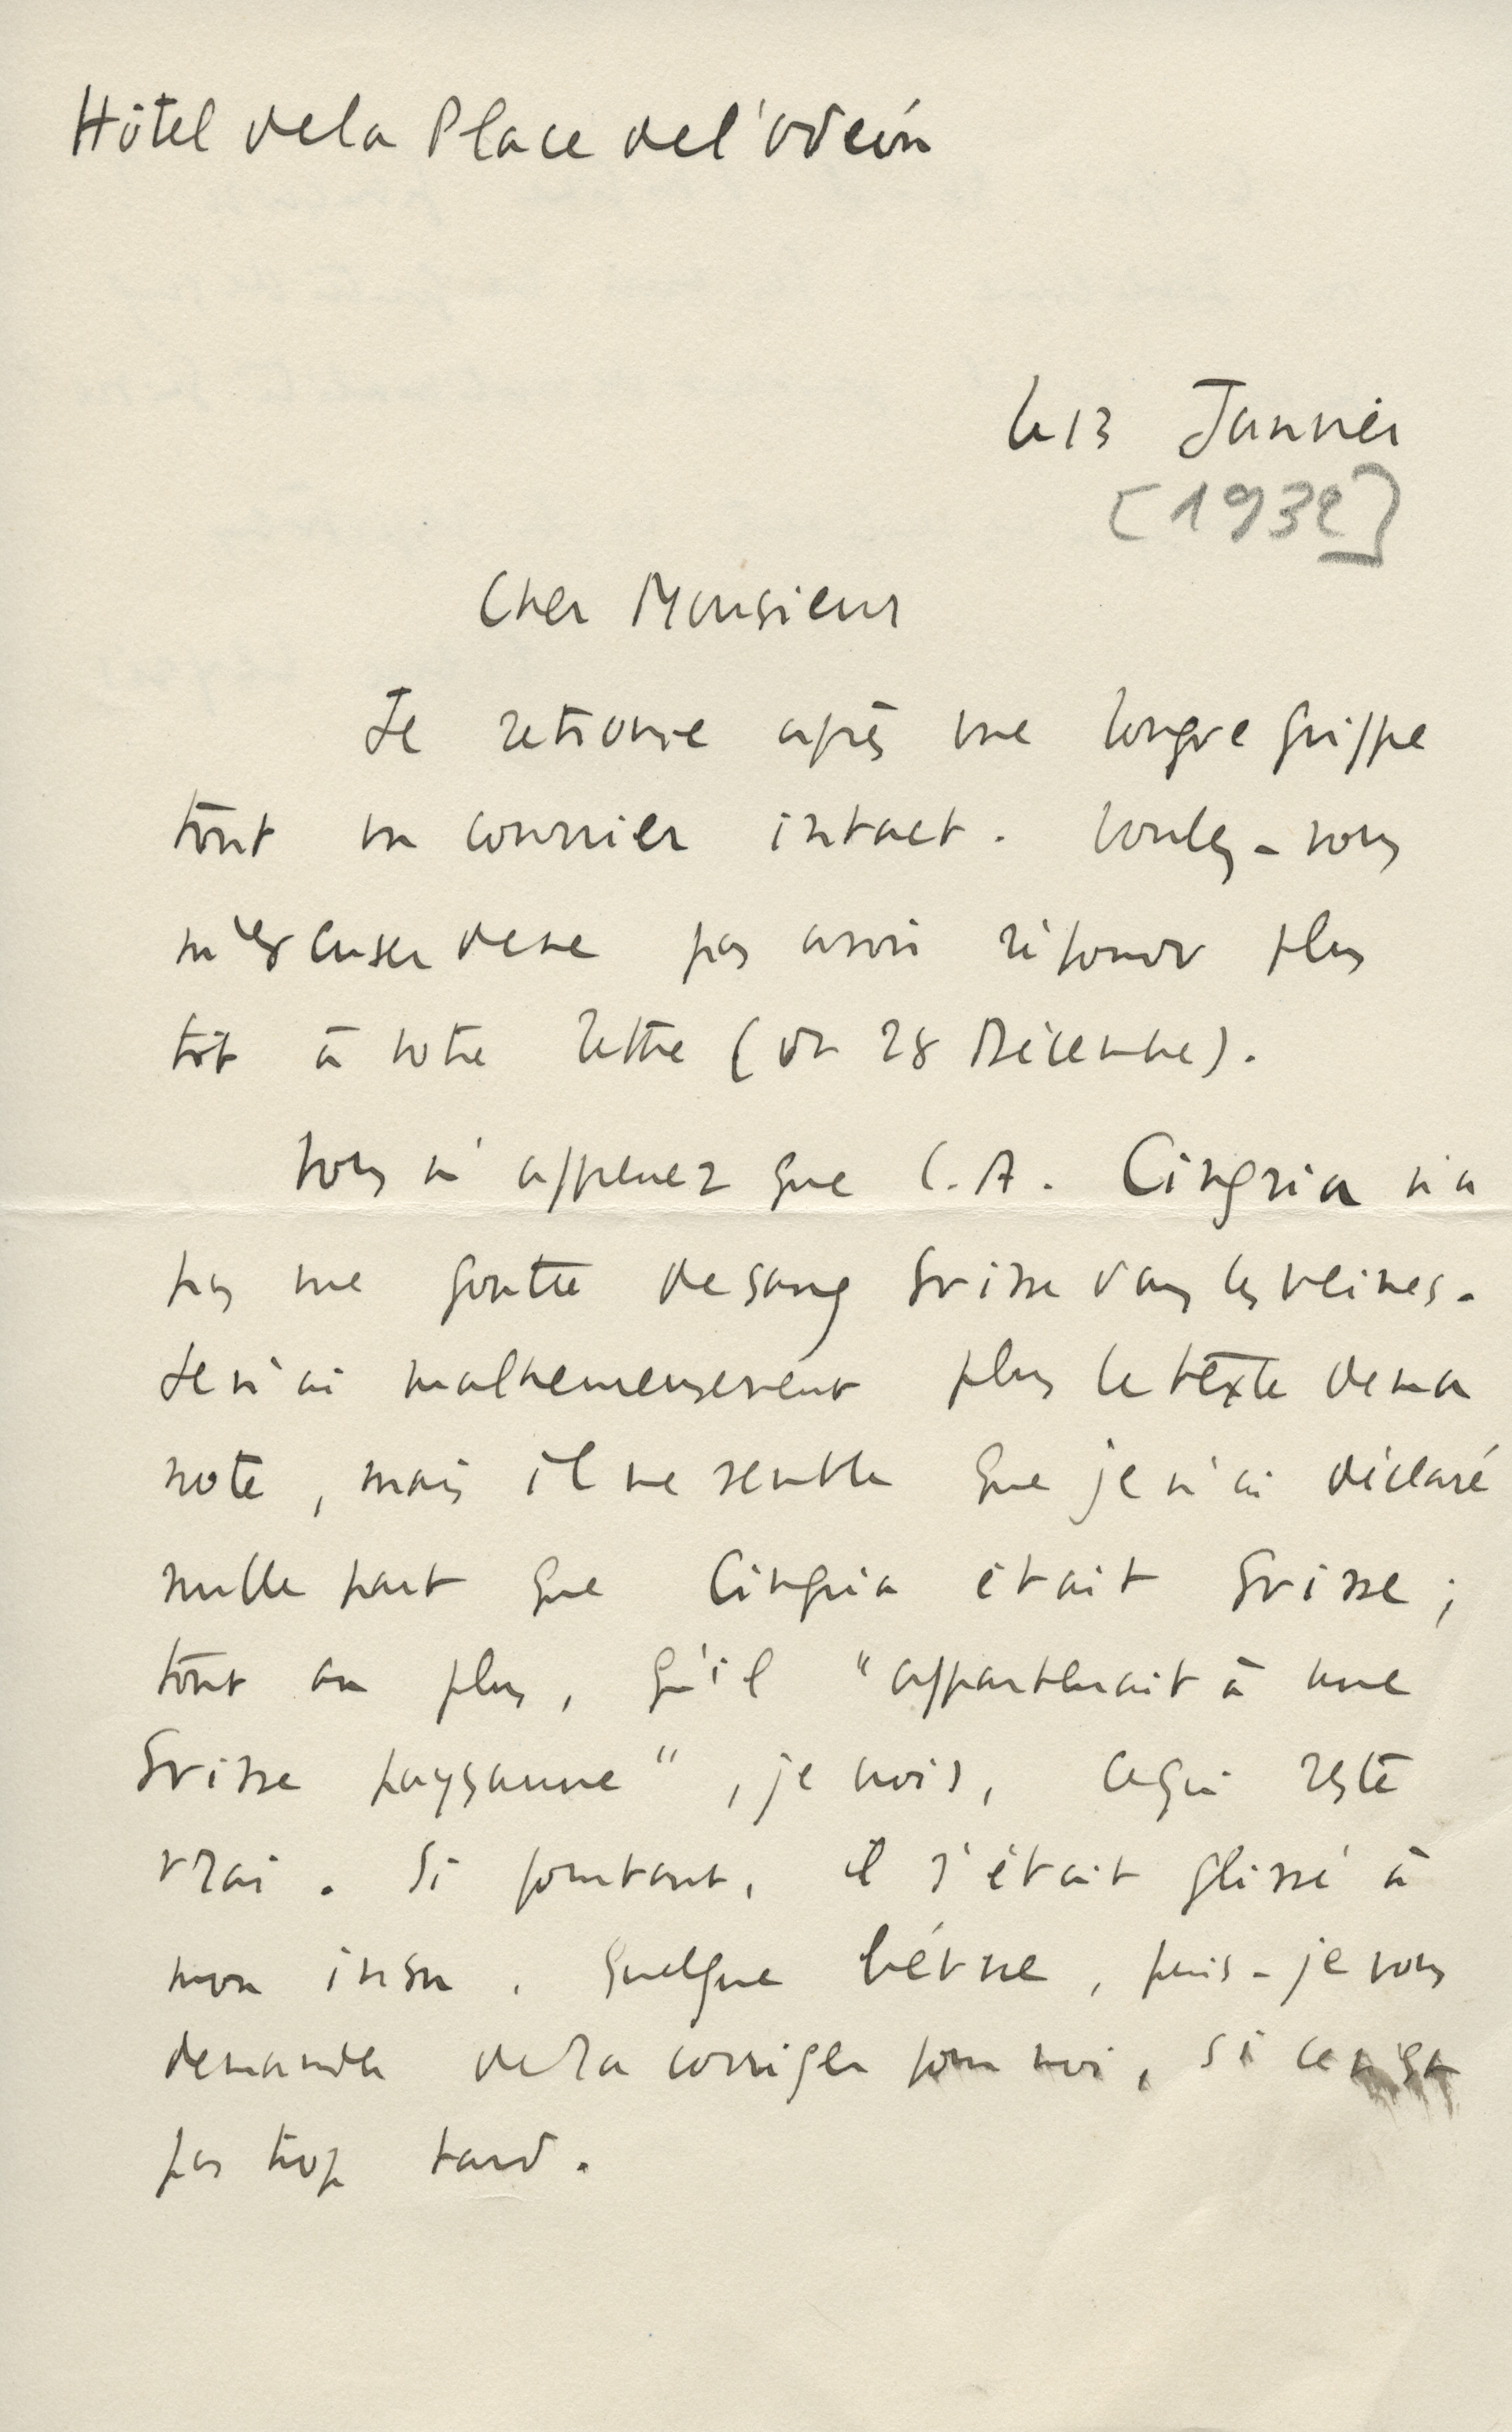 Hôtel de la Place de l'Odéon
le 13 Janvier
[1932]
Cher Monsieur
Je retrouve après une longue grippe
tout un courrier intact. Voulez-vous
m'excuser de ne pas avoir répondu plus
tôt à votre lettre (du 28 Décembre).
Vous m'apprenez que C.A. Cingria n'a
pas une goutte de sang suisse dans les veines.
Je n'ai malheureusement plus le texte de ma
note, mais il me semble que je n'ai déclaré
nulle part que Cingria était suisse ;
tout au plus, qu'il "appartenait à une
Suisse paysanne", je crois, ce qui reste
vrai. Si pourtant, il s'était glissé à
mon insu, quelque bévue, puis-je vous
demander de la corriger pour moi, si ce n'est
pas trop tard.